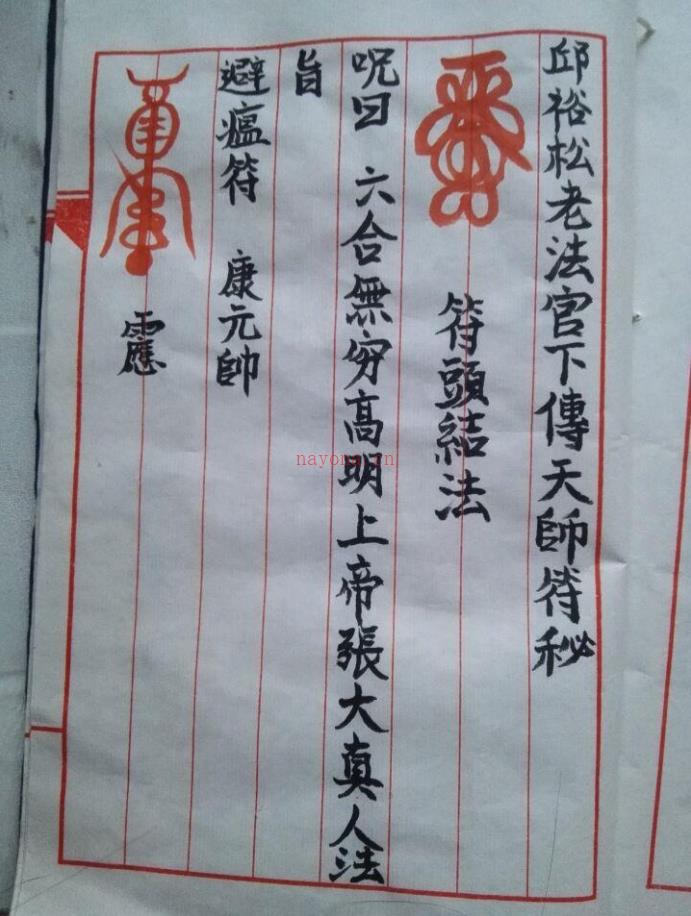 邱裕松老法官下傳天師符秘
符頭結法
咒曰 六合無穷高明上帝張大真人法
旨
避瘟符 康元帥
nayona.cn